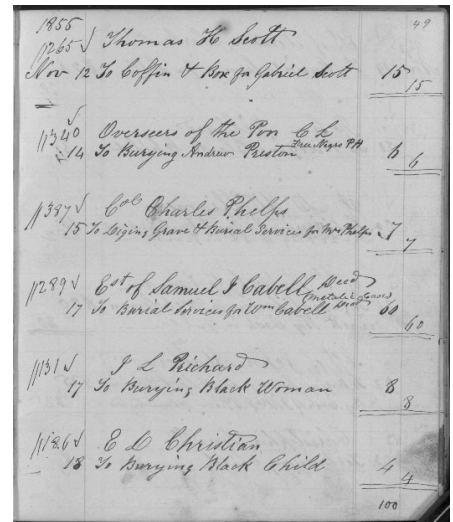 49
1855
1265 ✓ Thomas H Scott
Nov 12 To Coffin & Box for Gabriel Scott 15
15
✓
1340 Overseers of the Poor C L
14 To Burying Andrew Preston Free Negro PH 6
6
1397 ✓ Col Charles Phelps
15 To Diging Grave & Burial Services for Mrs Phelps 7
7
1289 ✓ Est of Samuel J Cabell Decd
17 To Burial Services for Wm Cabell Decd (Metalic Case) 60
60
1131 ✓ J L Prichard
17 To Burying Black Woman 8
8
1186 ✓ E D Christian
18 To Burying Black Child 4
4
100